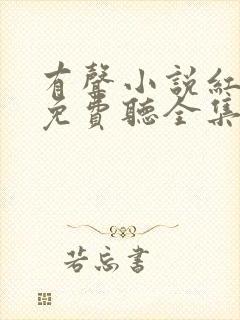 有聲小說紅
免費聽全集
若忘書